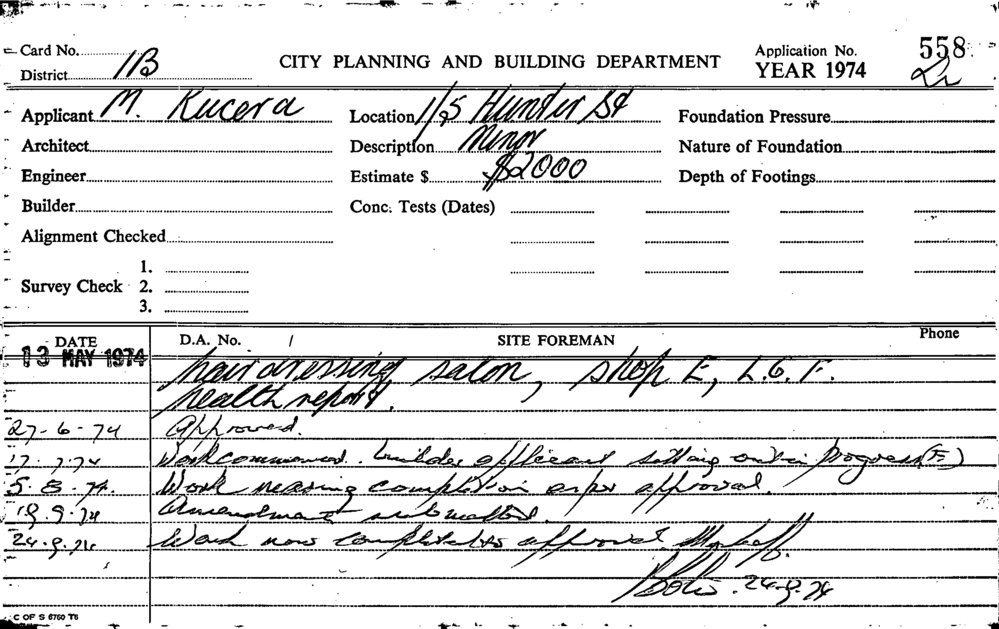 Card No. Application No. 558
District 11B CITY PLANNING AND BUILDING DEPARTMENT YEAR 1974
Applicant M. Kucera Location 1/25 Hunter St Foundation Pressure
Architect Description Minor Nature of Foundation
Engineer Estimate $ $2000 Depth of Footings
Builder Conc. Tests (Dates)
Alignment Checked
1.
Survey Check 2.
3.
DATE D.A. No. / SITE FOREMAN Phone
13 MAY 1974 hairdressing salon, shop E, L.G.F.
health report.
27-6-74 Approved.
17.7.74 Work commenced. builder setting out in progress (F)
5-8-74. Work nearing completion as per approval.
19.9.74 Amendment submitted.
24.9.74 Work now completed to approval.
24-9-74
C OF S 6760 T6